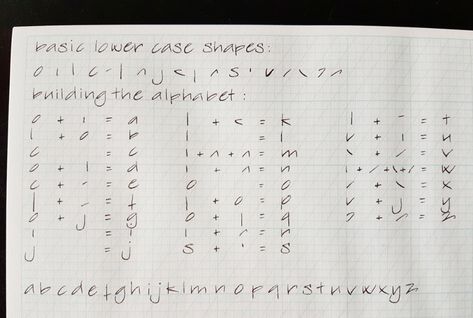 basic lower case shapes:
o ı l c - | n j < | r s ' v / \
building the alphabet:
o + ı = a
l + o = b
c = c
o + l = d
c + - = e
l + - = f
o + j = g
i = i
j = j
l + < = k
l = l
ı + n + n = m
ı + n = n
o = o
l + o = p
o + l = q
ı + r = r
s + ' = s
l + - = t
v + ı = u
\ + / = v
\ + / + \ + / = w
/ + \ = x
v + j = y
= z
a b c d e f g h i j k l m n o p q r s t u v w x y z